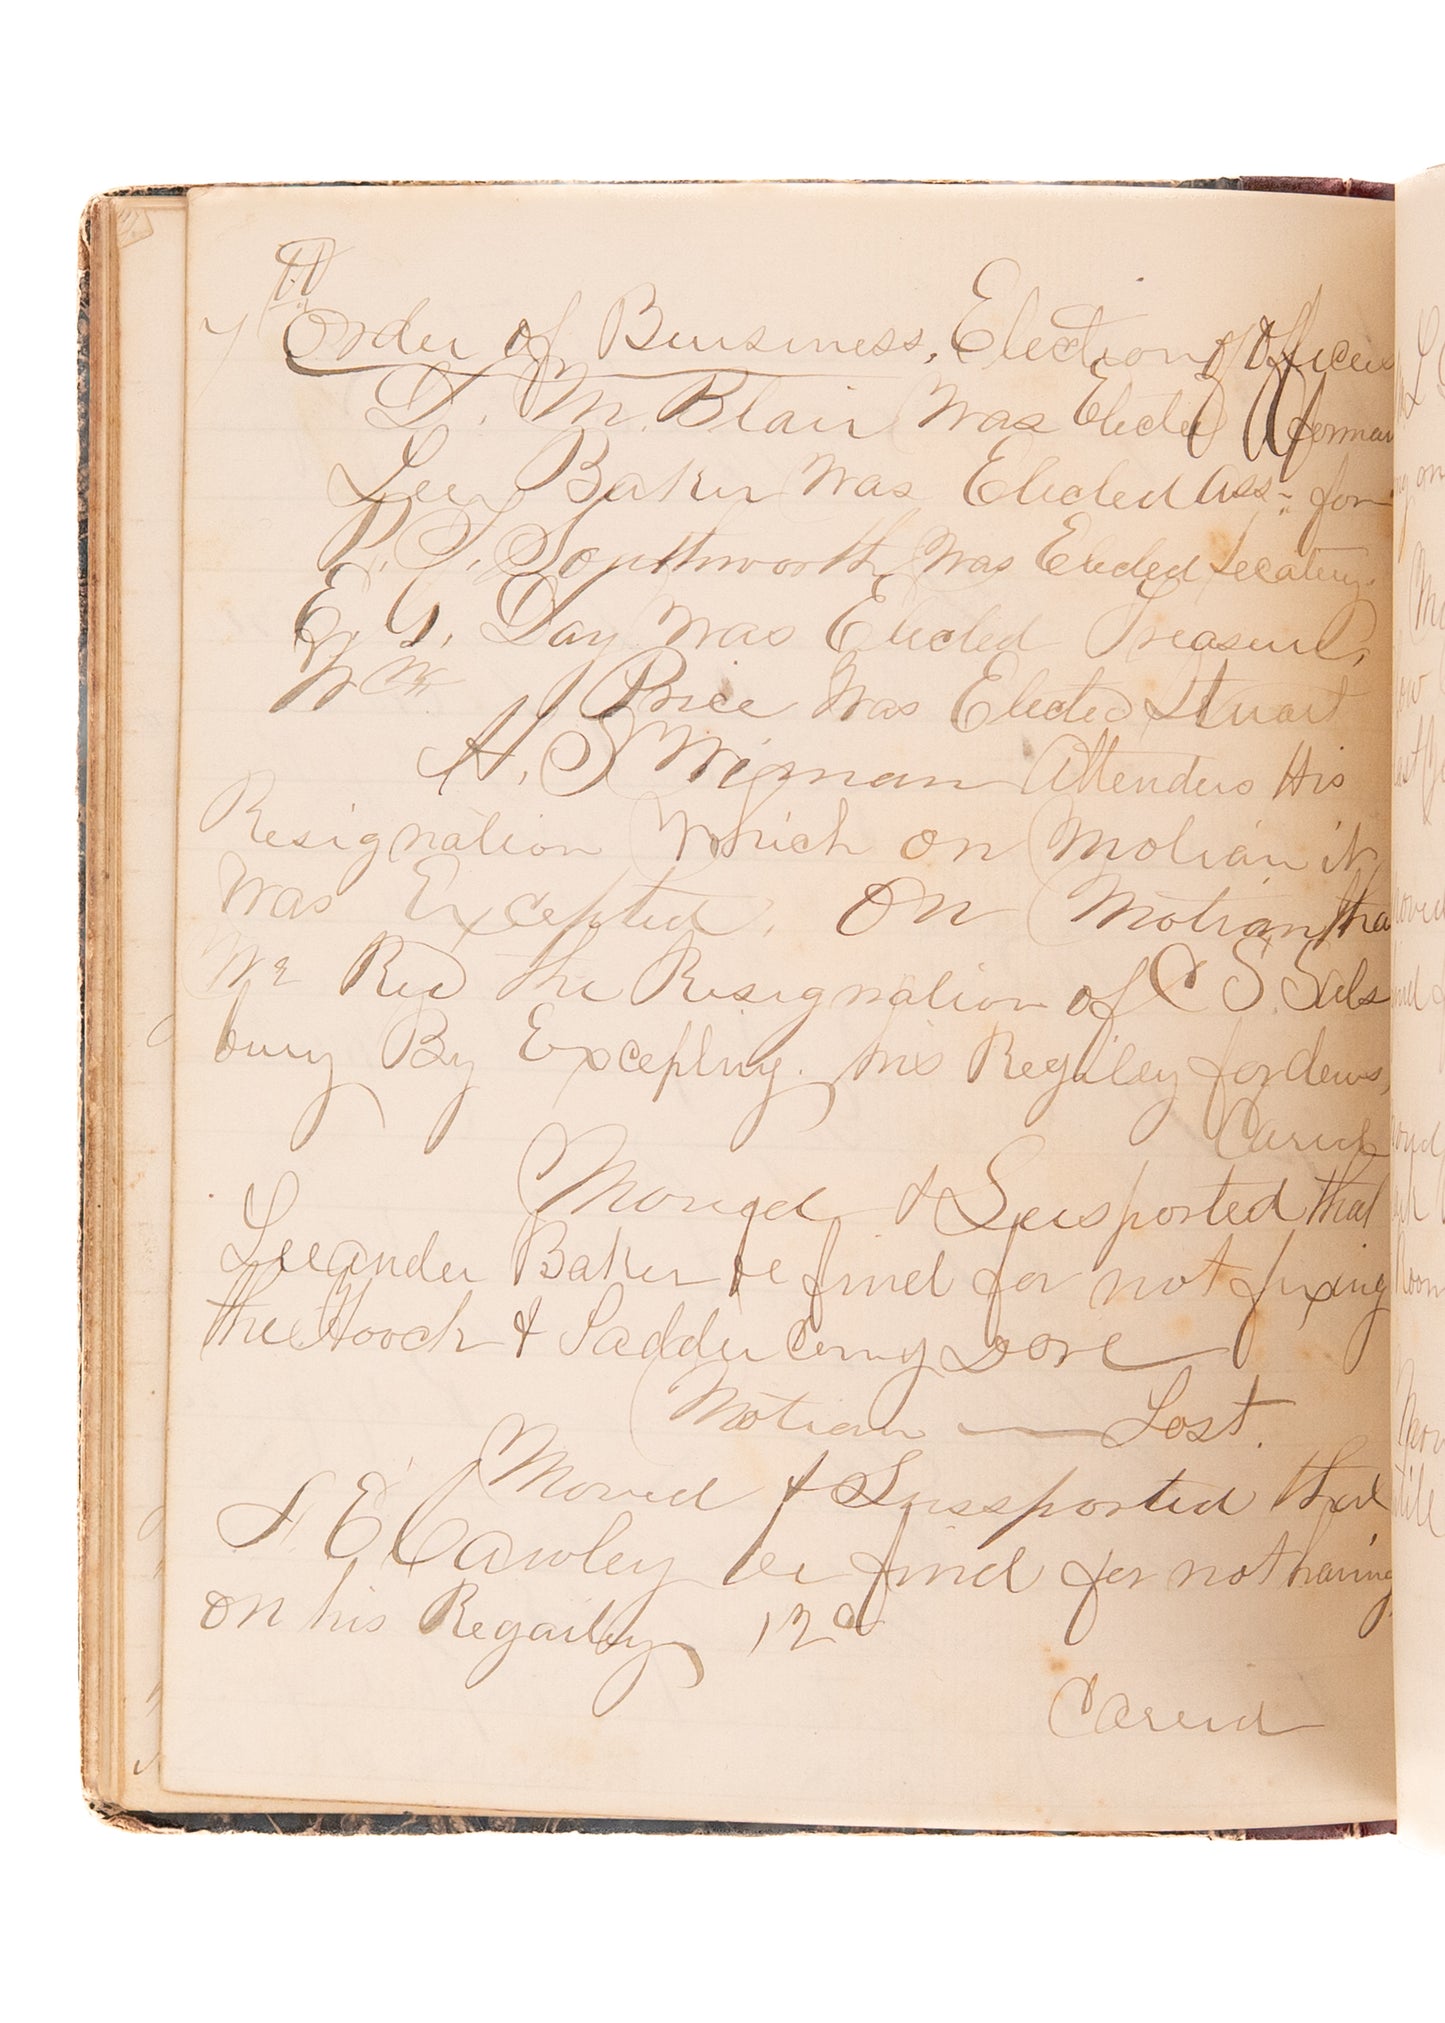 7th Order of Buisiness. Election of Officers
D. M. Blair Was Elected forman
Lee Baker Was Elected Ass- for
P. S. Southworth Was Elected Secatery.
E. G. Day Was Elected Treasure.
Wm Price Was Elected Stuart
H. S. Wigman Attenders His
Resignation Which on Motian it
Was Excepted. On Motian tha
We Rec the Resignation of C S. Sals
bury By Excepting. his Regiley for dews,
Caried
Moved & Suisported that
Leeander Baker be fined for not fixing
the Hooch & Ladder Dore
Motian — Lost.
Moved & Sussported that
S. E. Cawley be fined for not having
on his Regailey 12c
Caried